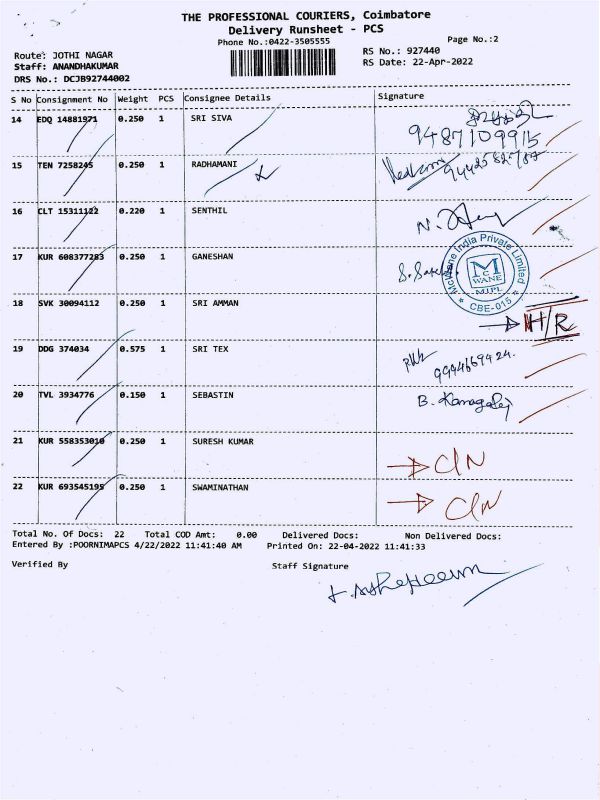 THE PROFESSIONAL COURIERS, Coimbatore
Delivery Runsheet - PCS
Phone No.:0422-3505555
Page No.:2
Route: JOTHI NAGAR
Staff: ANANDHAKUMAR
DRS No.: DCJB92744002
RS No.: 927440
RS Date: 22-Apr-2022
S No Consignment No Weight PCS Consignee Details Signature
14 EDQ 14881971 0.250 1 SRI SIVA
9487109915
15 TEN 7258245 0.250 1 RADHAMANI
16 CLT 15311122 0.220 1 SENTHIL
17 KUR 608377283 0.250 1 GANESHAN
McWane India Private Limited
MC WANE
MIPL
* CBE-015 *
18 SVK 30094112 0.250 1 SRI AMMAN
H/R
19 DDG 374034 0.575 1 SRI TEX
9994669424.
20 TVL 3934776 0.150 1 SEBASTIN
B.
21 KUR 558353010 0.250 1 SURESH KUMAR
C/N
22 KUR 693545195 0.250 1 SWAMINATHAN
C/N
Total No. Of Docs: 22 Total COD Amt: 0.00 Delivered Docs: Non Delivered Docs:
Entered By :POORNIMAPCS 4/22/2022 11:41:40 AM Printed On: 22-04-2022 11:41:33
Verified By Staff Signature